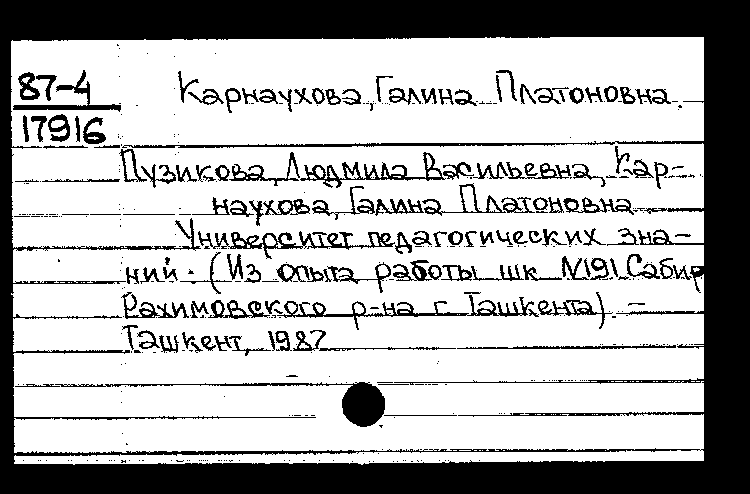 87-4
17916
Карнаухова, Галина Платоновна.
Пузикова, Людмила Васильевна, Кар-
наухова, Галина Платоновна.
Университет педагогических зна-
ний. (Из опыта работы шк N191 Сабир
Рахимовского р-на г. Ташкента). –
Ташкент, 1987